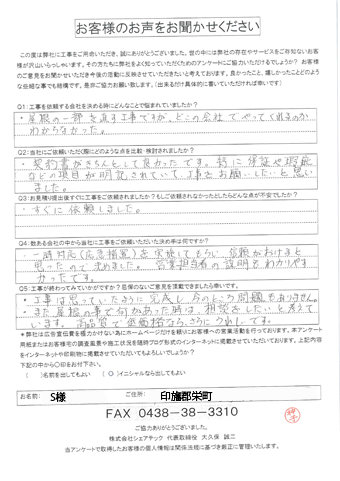 お客様のお声をお聞かせください
この度は弊社に工事をご用命いただき、誠にありがとうございました。世の中には弊社の存在やサービスをご存知ないお客
様が沢山いらっしゃいます。その方たちに弊社をよく知っていただくためのアンケートにご協力いただけるでしょうか？ お客様
のご意見をお聞かせいただき今後の活動に反映させていただきたいと考えております。良かったこと、嬉しかったことどのよう
な些細な事でも結構です。是非ご協力お願い致します。（出来るだけ具体的に書いていただければ幸いです）
Q1：工事を依頼する会社を決める時にどんなことで悩まれていましたか？
・屋根の一部を直す工事ですが、どこの会社でやってくれるのか
わからなかった。
Q2：当社にご依頼いただく際にどのような点を比較・検討されましたか？
・契約書がきちんとして良かったです。特に保証や瑕疵
などの項目が明記されていて、工事をお願いしたいと思い
ました。
Q3：お見積り提出後すぐに工事をご依頼されましたか？もしご依頼されなかったとしたらどんな点が不安でしたか？
・すぐに依頼しました。
Q4：数ある会社の中から当社に工事をご依頼いただいた決め手は何ですか？
・一時対応(応急措置)を実施してもらい、信頼がおけると
思ったので決めました。営業担当者の説明もわかりやす
かったです。
Q5：工事が終わってみていかがですか？忌憚のないご意見を頂戴できましたら幸いです。
・工事は思っていたように完成し、今のところ問題もありません。
・また屋根の事で何かあった時は、相談をしたいと考えて
います。高品質で低価格なら、さらにうれしです。
＊弊社は広告宣伝費を極力かけない為にホームページだけを頼りにお客様への営業活動を行っております。本アンケート
用紙またはお客様宅の調査風景や施工状況を随時ブログ形式のインターネットに掲載させていただいております。上記内容
をインターネットや印刷物に掲載させていただいてもよろしいでしょうか？
下記の中から〇印をお付け下さい。
（　）名前を出してもよい　（○）イニシャルなら出してもよい
お名前: S様 ご住所: 印旛郡栄町
FAX 0438-38-3310
ご協力ありがとうございました。
株式会社シェアテック 代表取締役 大久保 誠二
当アンケートで取得したお客様の個人情報は関係法規に基づき厳正に管理いたします。